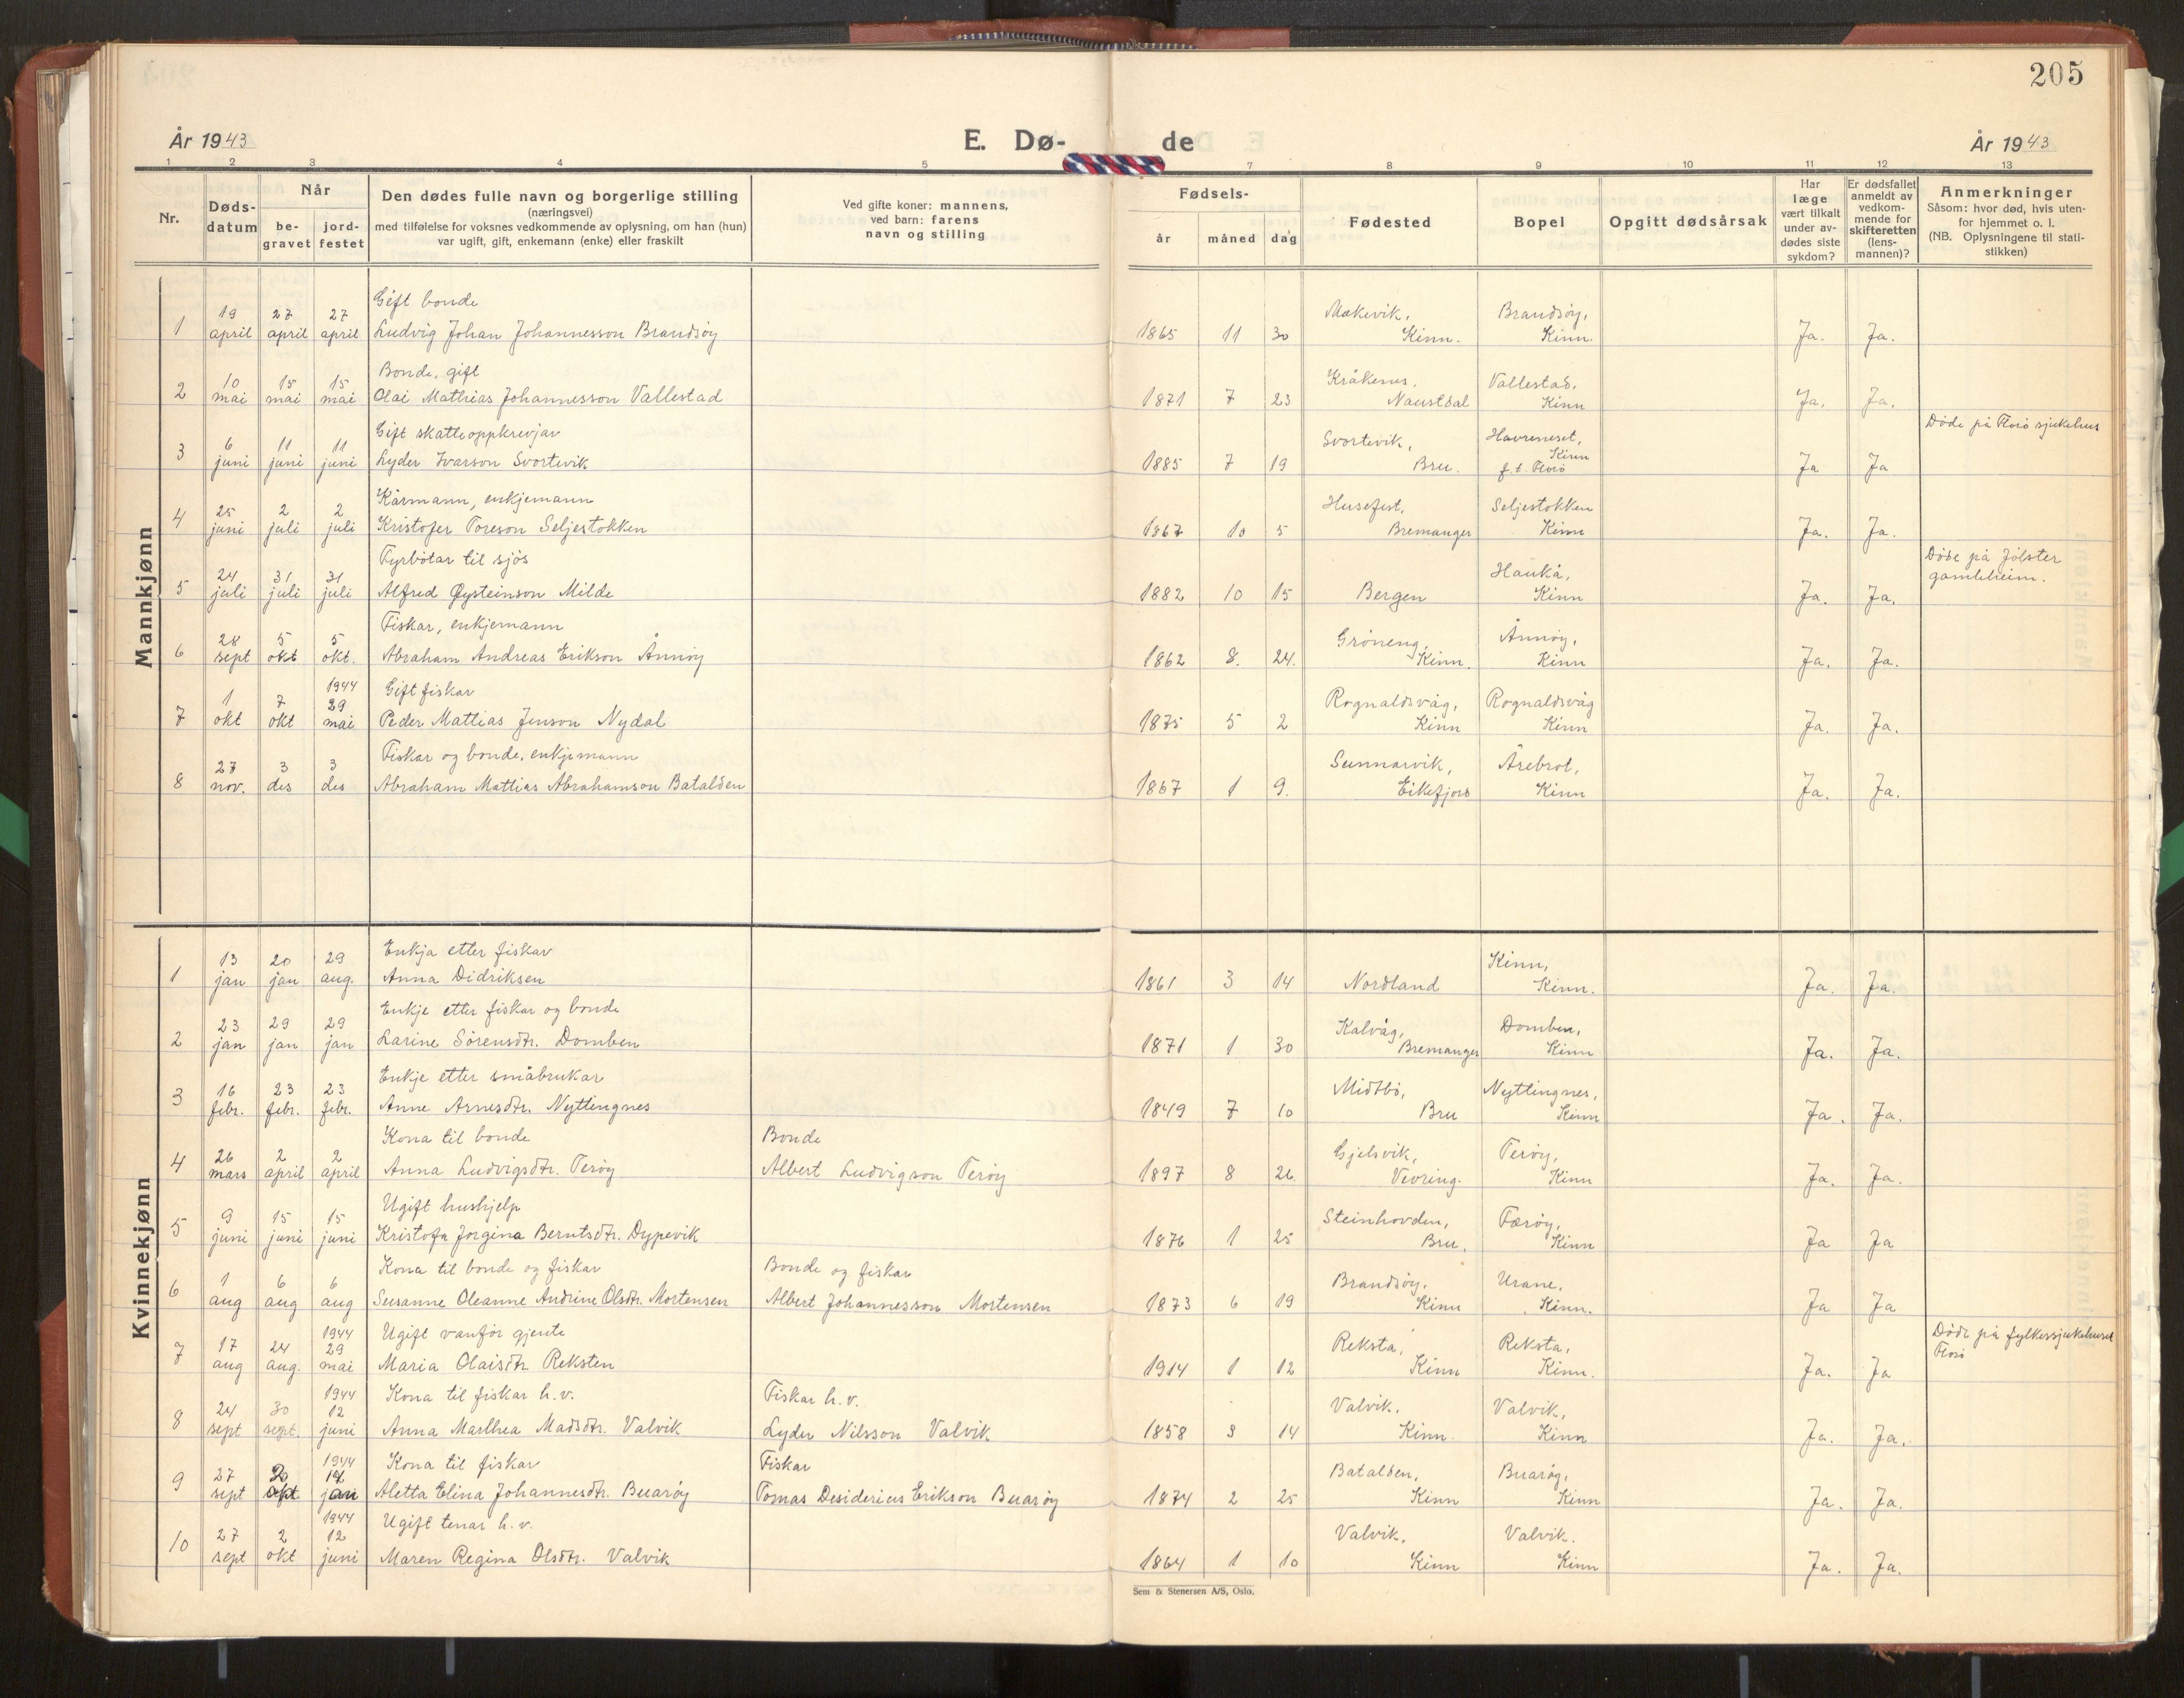 205
År 1943
E. Dø-
de
År 1943
1 2 3 4 5 7 8 9 10 11 12 13
Nr.
Døds-
datum
Når
be-
gravet
jord-
festet
Den dødes fulle navn og borgerlige stilling
(næringsvei)
med tilføielse for voksnes vedkommende av oplysning, om han (hun)
var ugift, gift, enkemann (enke) eller fraskilt
Ved gifte koner: mannens,
ved barn: farens
navn og stilling
Fødsels-
år måned dag
Fødested
Bopel
Opgitt dødsårsak
Har
læge
vært tilkalt
under av-
dødes siste
sykdom?
Er dødsfallet
anmeldt av
vedkom-
mende for
skifteretten
(lens-
mannen)?
Anmerkninger
Såsom: hvor død, hvis uten-
for hjemmet o. l.
(NB. Oplysningene til stati-
stikken)
Mannkjønn
19 27 27 Gift bonde Brandsøy,
1 april april april Ludvig Johan Johannesson Brandsøy 1865 11 30 Kinn. Kinn. Ja. Ja.
10 15 15 Bonde, gift Kråkenes, Vallestad,
2 mai mai mai Olai Mathias Johannesson Vallestad 1871 7 23 Naustdal Kinn Ja. Ja.
6 11 11 Gift skatteoppkrevjar Svortevik, Havreneset, Kinn Døde på Florø sjukehus
3 juni juni juni Lyder Ivarson Svortevik 1885 7 19 Bru. f.t. Florø Ja Ja
25 2 2 Kårmann, enkjemann Husefest, Seljestokken
4 juni juli juli Kristofer Toreson Seljestokken 1867 10 5 Bremanger Kinn Ja. Ja.
24 31 31 Fyrbøtar til sjøs Haukå, Døde på Jølster
5 juli juli juli Alfred Øysteinson Milde 1882 10 15 Bergen Kinn Ja. Ja. gamleheim.
28 5 5 Fiskar, enkjemann Grøneng, Ånnøy,
6 sept okt okt. Abraham Andreas Erikson Ånnøy 1862 8. 24. Kinn. Kinn Ja. Ja.
1 7 1944 29 Gift fiskar Rognaldsvåg, Rognaldsvåg
7 okt okt mai Peder Mattias Jenson Nydal 1875 5 2 Kinn Kinn Ja. Ja.
27 3 3 Fiskar og bonde, enkjemann Sunnarvik, Årebrot,
8 nov. des des Abraham Mattias Abrahamson Batalden 1867 1 9. Eikefjord Kinn Ja. Ja.
Kvinnekjønn
13 20 29 Enkja etter fiskar Kinn,
1 jan jan aug. Anna Didriksen 1861 3 14 Nordland Kinn. Ja. Ja.
23 29 29 Enkje etter fiskar og bonde Kalvåg, Domben,
2 jan jan jan Larine Sørensdtr. Domben 1871 1 30 Bremanger Kinn Ja. Ja.
16 23 23 Enkje etter småbrukar Midtbø, Nyttingnes,
3 febr. febr. febr. Anne Arnesdtr. Nyttingnes 1849 7 10 Bru Kinn Ja. Ja.
26 2 2 Kona til bonde Bonde Gjelsvik, Terøy,
4 mars april april Anna Ludvigsdtr. Terøy Albert Ludvigson Terøy 1897 8 26. Vevring. Kinn Ja. Ja.
9 15 15 Ugift hushjelp Steinhovden, Færøy,
5 juni juni juni Kristofa Jorgina Berntsdtr. Dypevik 1876 1 25 Bru. Kinn Ja Ja
1 6 6 Kona til bonde og fiskar Bonde og fiskar Brandsøy, Urane,
6 aug aug aug Susanne Oleanne Andrine Olsdtr. Mortensen Albert Johannesson Mortensen 1873 6 19 Kinn Kinn. Ja Ja
17 24 1944 29 Ugift vanfør gjente Reksta, Reksta, Døde på fylkessjukehuset
7 aug aug. mai Maria Olaisdtr. Reksten 1914 1 12 Kinn Kinn. Ja. Ja Florø
24 30 1944 12 Kona til fiskar h. v. Fiskar h. v. Valvik, Valvik,
8 sept sept. juni Anna Marthea Madsdtr. Valvik Lyder Nilsson Valvik 1858 3 14 Kinn Kinn Ja. Ja.
27 1944 Kona til fiskar Fiskar Batalden, Buarøy,
9 sept Aletta Elina Johannesdtr. Buarøy Tomas Desiderius Erikson Buarøy 1874 2 25 Kinn Kinn Ja. Ja.
27 2 1944 12 Ugift tenar h. v. Valvik, Valvik.
10 sept okt juni Maren Regina Olsdtr. Valvik 1864 1 10 Kinn Kinn Ja. Ja.
Sem & Stenersen A/S, Oslo.